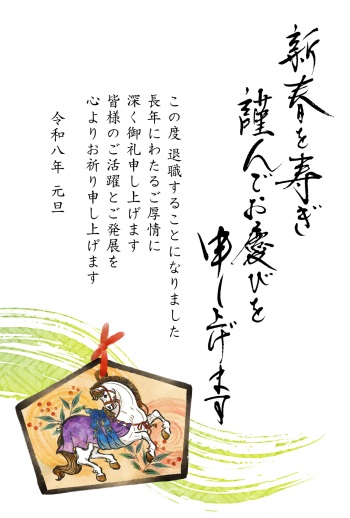 新春を寿ぎ
謹んでお慶びを
申し上げます
この度 退職することになりました
長年にわたるご厚情に
深く御礼申し上げます
皆様のご活躍とご発展を
心よりお祈り申し上げます
令和八年 元旦